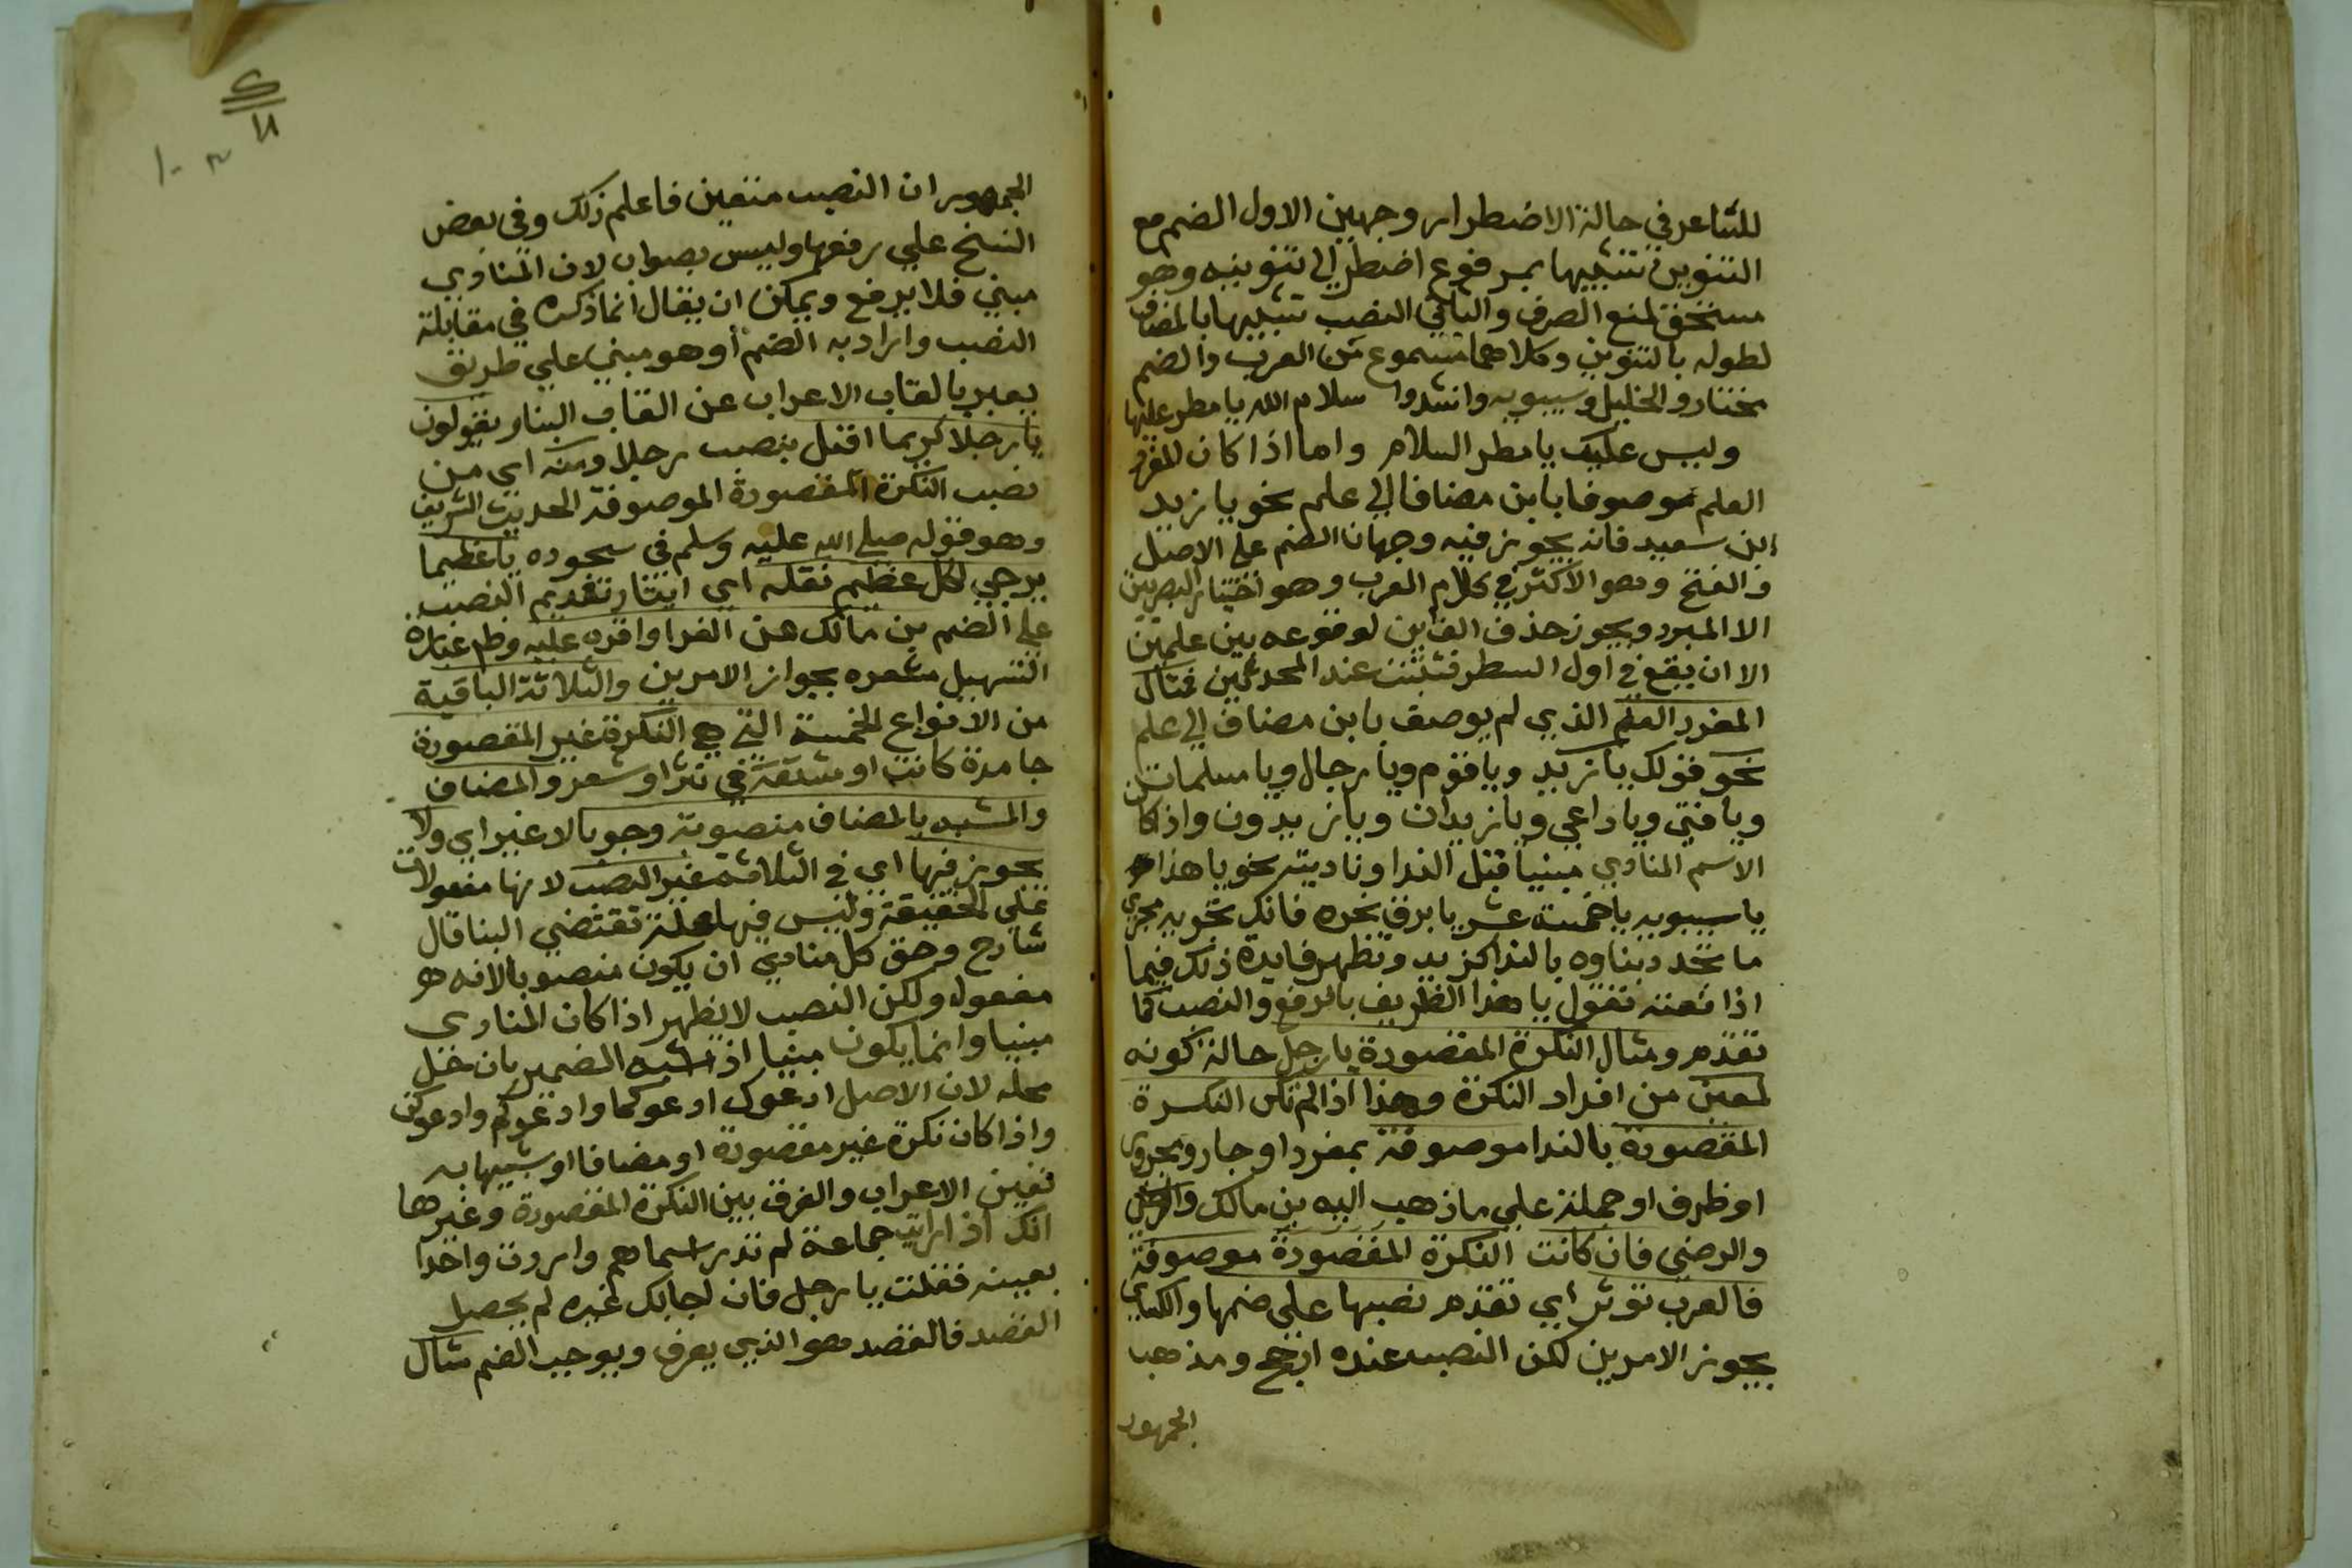 للشاعر في حالة الاضطرار وجهين الاول الضم مع
التنوين تشبيها بمرفوع اضطر الى تنوينه وهو
مستحق لمنع الصرف والثاني النصب تشبيها بالمضاف
لطوله بالتنوين وكلاهما مسموع من العرب والضم
مختار والخليل وسيبويه وانشدوا سلام الله يا مطر عليها
وليس عليك يا مطر السلام واما اذا كان المفرد
العلم موصوفا بابن مضافا الي علم نحو يا زيد
ابن سعيد فانه يجوز فيه وجهان الضم علي الاصل
والفتح وهو الاكثر في كلام العرب وهو اختيار البصريين
الا المبرد ويجوز حذف الف ابن لوقوعه بين علمين
الا ان يقع في اول السطر فتثبت عند المحدثين فمثال
المفرد العلم الذي لم يوصف بابن مضاف الي علم
نحو قولك يا زيد ويا قوم ويا رجال ويا مسلمات
ويا فتي ويا داعي ويا زيدان ويا زيدون واذا كان
الاسم المنادي مبنيا قبل الندا وناديته نحو يا هذا
يا سيبويه يا خمسة عشر يا برق نحره فانك تجريه مجري
ما تجدد بناوه بالندا كزيد وتظهر فايدة ذلك فيما
اذا نعته تقول يا هذا الظريف بالرفع والنصب كما
تقدم ومثال النكرة المقصورة يا رجل حالة كونه
لمعين من افراد النكرة وهذا اذا لم تكن النكرة
المقصودة بالندا موصوفة بمفرد او جار ومجرور
او ظرف او جملة علي ما ذهب اليه بن مالك
والرضي فان كانت النكرة المقصودة موصوفة
فالعرب توثر اي تقدم نصبها علي ضمها والكساي
يجوز الامرين لكن النصب عنده ارجح ومذهب
الجمهور
الجمهور ان النصب متعين فاعلم ذلك وفي بعض
النسخ علي رفعها وليس بصواب لان المنادي
مبني فلا يرفع ويمكن ان يقال انما ذكره في مقابلة
النصب واراد به الضم أو هو مبني علي طريق
يعبر بالقاب الاعراب عن القاب البنا ويقولون
يا رجلا كريما اقبل بنصب رجلا ومنه اي من
نصب النكرة المقصورة الموصوفة الحديث الشريف
وهو قوله صلي الله عليه وسلم في سجوده يا عظيما
يرجي لكل عظيم نقله اي ايثار تقديم النصب
علي الضم بن مالك عن الفرا واقره عليه وظم عبارة
التسهيل مشعره بجواز الامرين والثلاثة الباقية
من الانواع الخمسة التي هي النكرة غير المقصورة
جامدة كانت او مشتقة في نثر او شعر والمضاف
والمشبه بالمضاف منصوبة وجوبا لا غير اي ولا
يجوز فيها اي في الثلاثة غير النصب لانها مفعولات
علي الحقيقة وليس فيها علة تقتضي البنا قال
شارح وحق كل منادي ان يكون منصوبا لانه
مفعول ولكن النصب لا يظهر اذا كان المنادي
مبنيا وانما يكون مبنيا اذا اشبه الضمير بان حل
محله لان الاصل ادعوك ادعوكما وادعوكم وادعوكن
واذا كان نكرة غير مقصودة او مضافا او شبيها به
تعين الاعراب والفرق بين النكرة المقصودة وغيرها
انك اذا رايت جماعة لم تدر اسماهم واردت واحدا
بعينه فقلت يا رجل فان اجابك غيره لم يحصل
القصد فالقصد هو الذي يعرف ويوجب الضم مثال